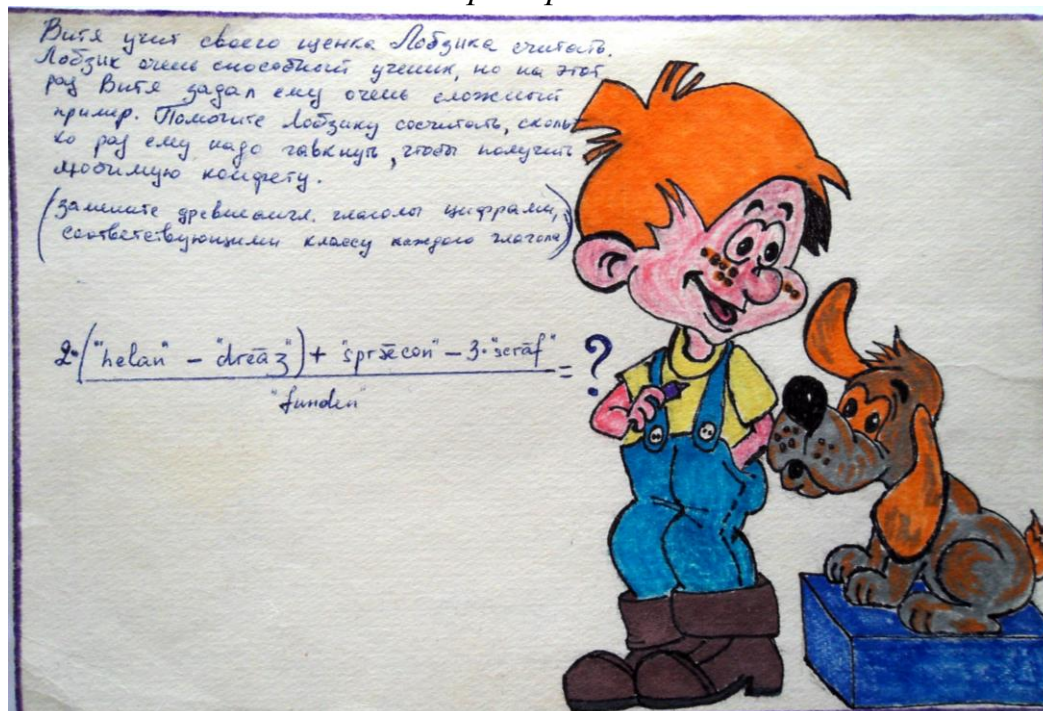 Витя учит своего щенка Лобзика считать.
Лобзик очень способный ученик, но на этот
раз Витя задал ему очень сложный
пример. Помогите Лобзику сосчитать, сколь
ко раз ему надо гавкнуть, чтобы получить
любимую конфету.
(замените древнеангл. глаголы цифрами,
соответствующими классу каждого глагола)
2•("helan" – "drēaʒ") + "sprǣcon" – 3•"scrāf"
= ?
"funden"